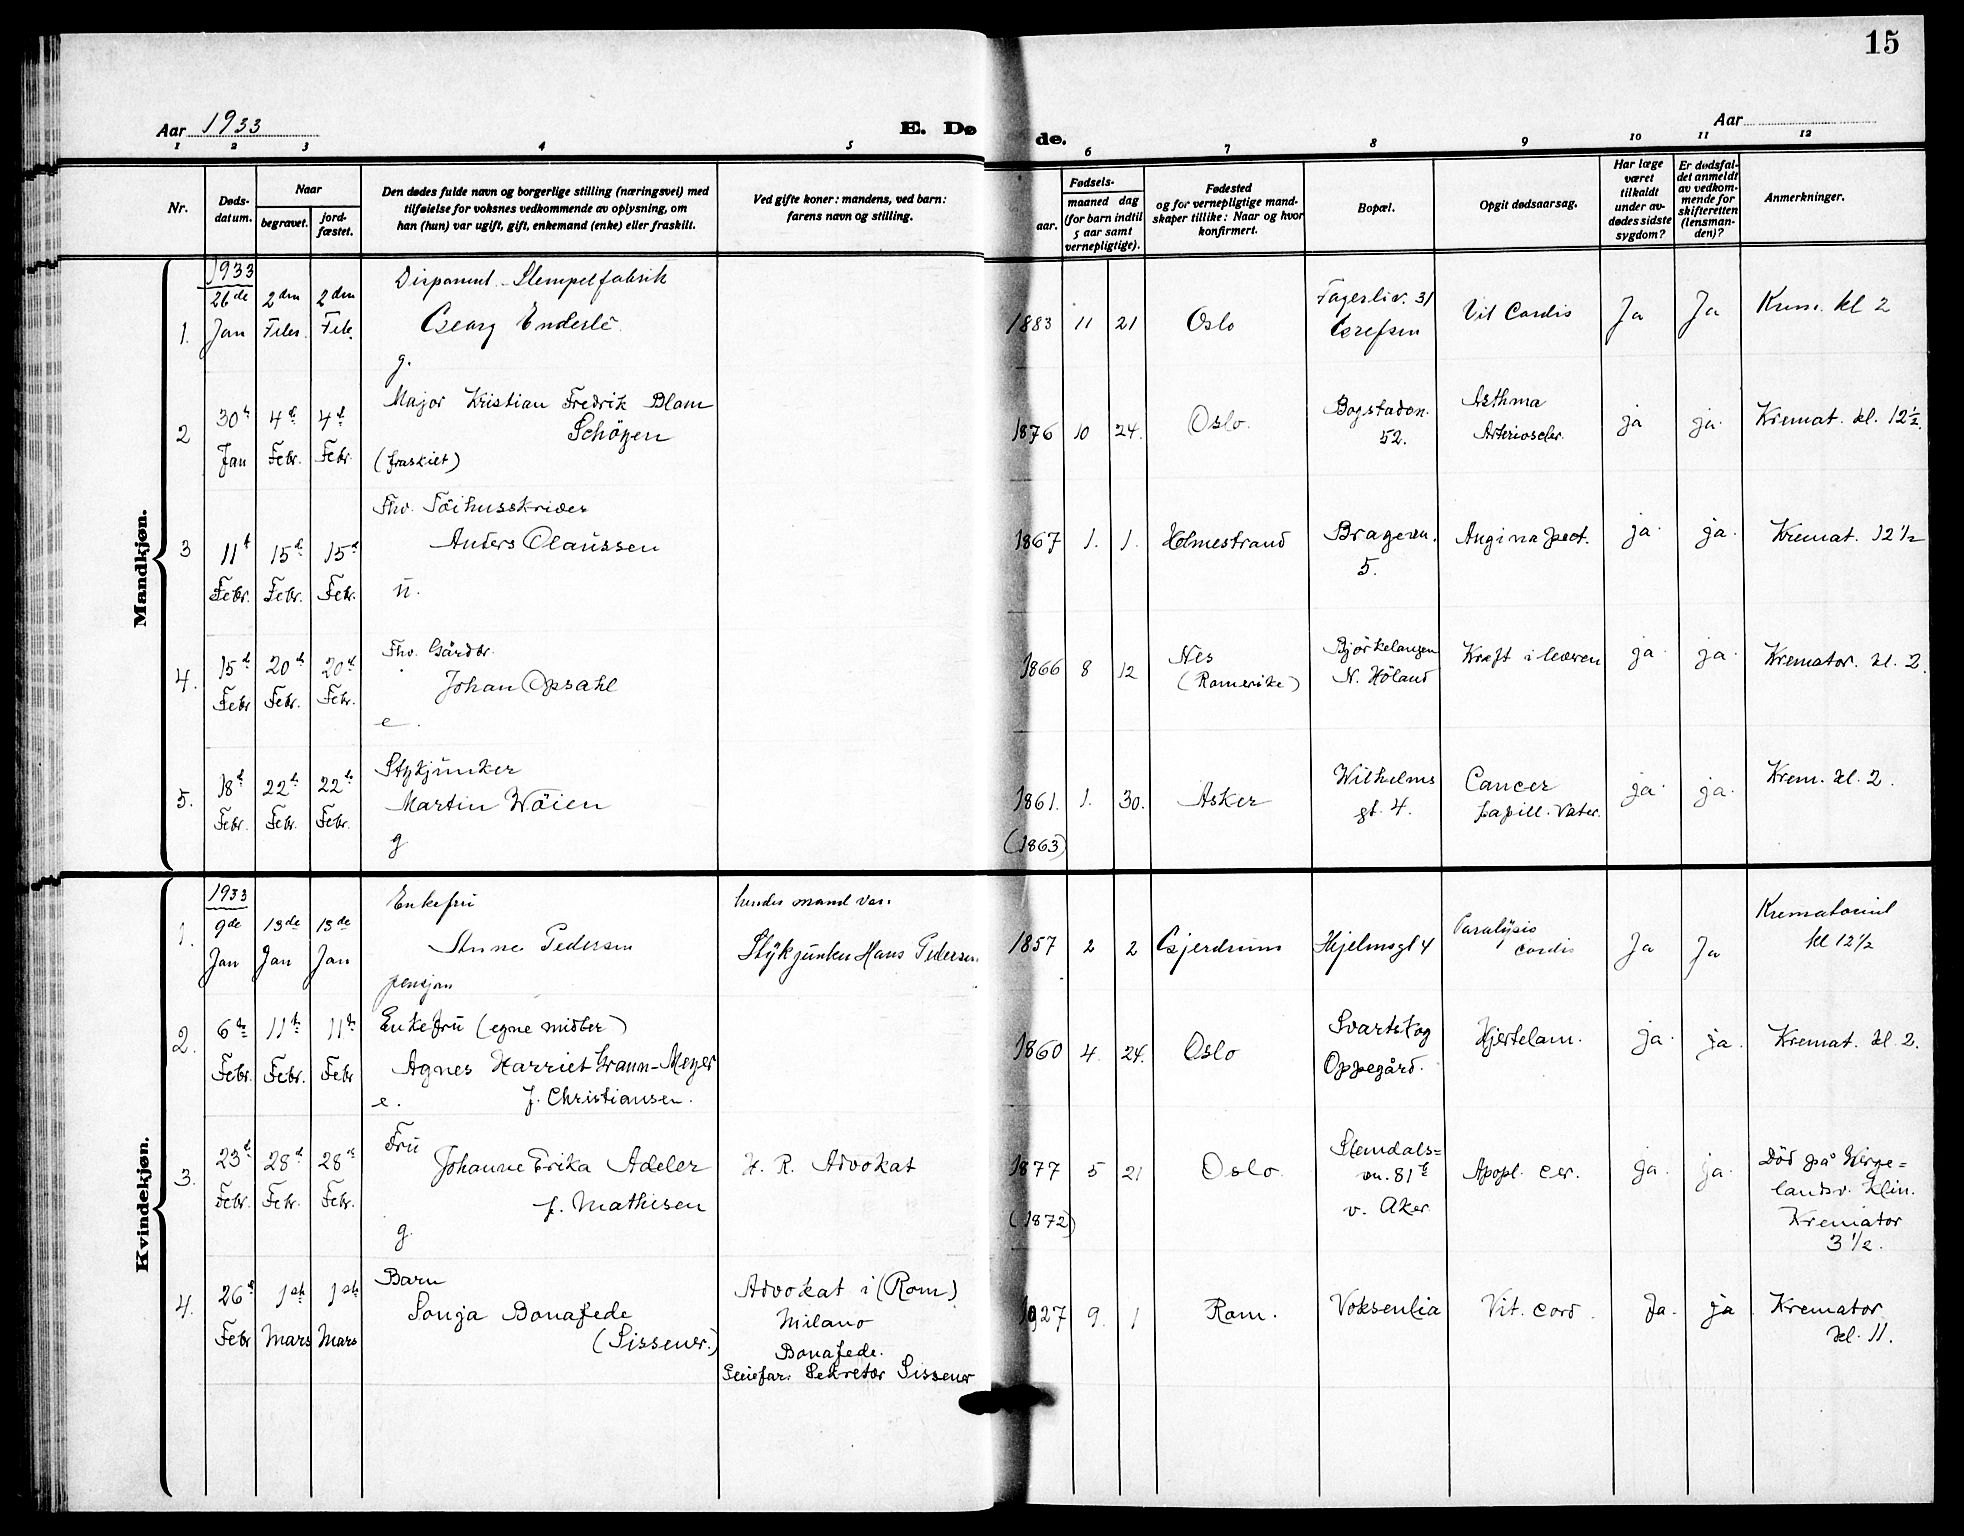 15
Aar 1933
E. Døde.
Aar
1 2 3 4 5 6 7 8 9 10 11 12
Nr.
Døds-
datum.
Naar
begravet.
jord-
fæstet.
Den dødes fulde navn og borgerlige stilling (næringsvei) med
tilføielse for voksnes vedkommende av oplysning, om
han (hun) var ugift, gift, enkemand (enke) eller fraskilt.
Ved gifte koner: mandens, ved barn:
farens navn og stilling.
Fødsels-
aar.
maaned dag
(for barn indtil
5 aar samt
vernepligtige).
Fødested
og for vernepligtige mand-
skaper tillike: Naar og hvor
konfirmert.
Bopæl.
Opgit dødsaarsag.
Har læge
været
tilkaldt
under av-
dødes sidste
sygdom?
Er dødsfal-
det anmeldt
av vedkom-
mende for
skifteretten
(lensman-
den)?
Anmerkninger.
Mandkjøn.
1933
1. 26de Jan 2den Febr. 2den Feb.
Disponent Stempelfabrik
Georg Enderle
g.
1883 11 21 Oslo
Fagerliv. 31
Grefsen
Vit Cordis Ja Ja Krem. kl 2
2 30te Jan 4de Febr. 4de Febr
Major Kristian Fredrik Blom
Schögen
(fraskilt)
1876 10 24. Oslo.
Bogstadvn.
52.
Asthma
Arterioscler.
ja ja. Kremat. kl. 12½.
3 11t Febr. 15d. Febr. 15d Febr.
Fhv. Töihusskriver
Anders Olaussen
ü.
1867 1. 1. Holmestrand
Bragevn.
5.
Angina pect. ja. ja. Kremat. 12 1/2
4. 15d. Febr 20d. Febr. 20d. Febr.
Fhv. Gårdbr.
Johan Opsahl
e.
1866 8 12
Nes
(Romerike)
Björkelangen
N. Höland
Kreft i leveren ja. ja. Kremator. kl. 2
5. 18d. Febr. 22d. Febr. 22d. Febr.
Stykjünker
Martin Wöien
g
1861. 1. 30. Asker
(1863)
Wilhelms
gt. 4.
Cancer
papill. Vater.
ja. ja. Krem. kl. 2.
Kvindekjøn.
1933
1. 9de Jan 13de Jan 13de Jan
Enkefru
Anne Pedersen
pensjon
hendes mand var:
Stÿkjunker Hans Pedersen
1857 2 2 Gjerdrum Hjelmsgt 4
Paralysis
cordis
Ja Ja
Krematoriet
kl 12½
2. 6te Febr. 11te Febr. 11te Febr
Enkefrü (egne midler)
Agnes Harriet Grann-Meyer
e. f. Christiansen.
1860 4. 24. Oslo
Svartskog
Oppegård.
Hjertelam. ja. ja. Kremat. kl 2.
3. 23d Febr. 28d Febr. 28d Febr.
Frü
Johanne Erika Adeler
f. Mathisen
g.
H. R. Advokat
1877 5 21 Oslo.
(1872)
Slemdals=
vn. 81b
v. Aker
Apopl. cer. ja. ja.
Död på Herge=
landsv. Klin.
Kremator
3 1/2.
4. 26d Febr 1ste Mars 1ste Mars
Barn
Sonja Bonafede
(Sissener.)
Advokat i (Rom)
Milano
Bonafede.
Pleiefar: Sekretær Sissener
1927 9. 1 Rom. Voksenlia Vit. cord. Ja. ja
Kremator
kl. 11.